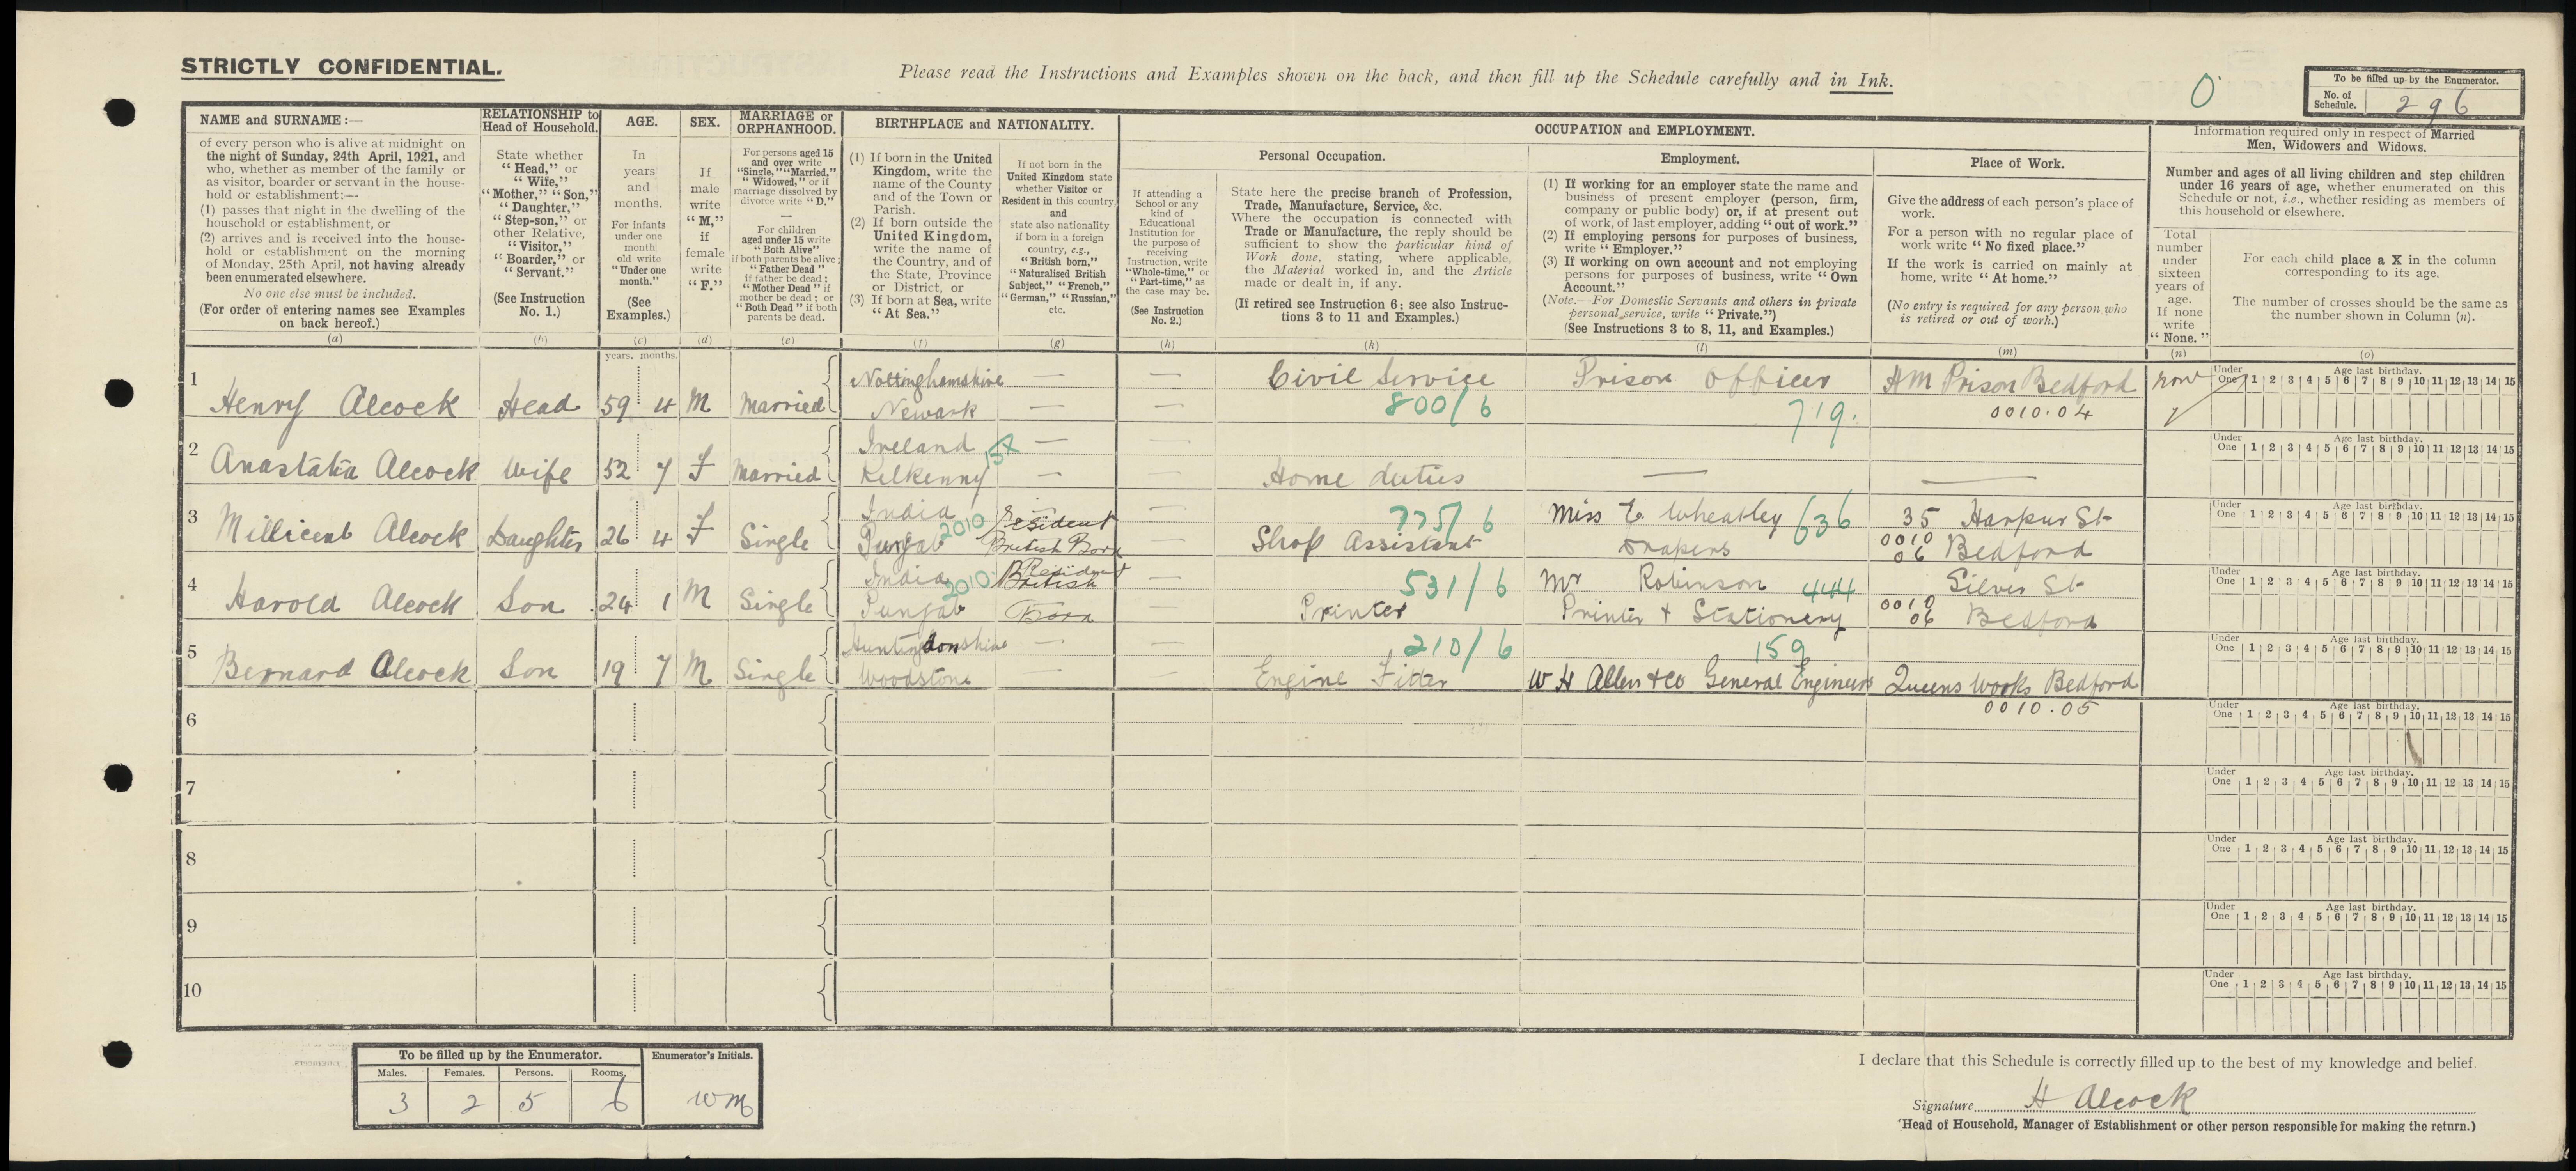 STRICTLY CONFIDENTIAL.
Please read the Instructions and Examples shown on the back, and then fill up the Schedule carefully and in Ink.
0
To be filled up by the Enumerator.
No. of Schedule. 296
NAME and SURNAME:—
of every person who is alive at midnight on
the night of Sunday, 24th April, 1921, and
who, whether as member of the family or
as visitor, boarder or servant in the house-
hold or establishment:—
(1) passes that night in the dwelling of the
household or establishment, or
(2) arrives and is received into the house-
hold or establishment on the morning
of Monday, 25th April, not having already
been enumerated elsewhere.
No one else must be included.
(For order of entering names see Examples
on back hereof.)
(a)
RELATIONSHIP to
Head of Household.
State whether
"Head," or
"Wife,"
"Mother," "Son,"
"Daughter,"
"Step-son," or
other Relative,
"Visitor,"
"Boarder," or
"Servant."
(See Instruction
No. 1.)
(b)
AGE.
In
years
and
months.
For infants
under one
month
old write
"Under one
month."
(See
Examples.)
(c)
SEX.
If
male
write
"M,"
if
female
write
"F."
(d)
MARRIAGE or
ORPHANHOOD.
For persons aged 15
and over write
"Single," "Married,"
"Widowed," or if
marriage dissolved by
divorce write "D."
—
For children
aged under 15 write
"Both Alive"
if both parents be alive;
"Father Dead"
if father be dead;
"Mother Dead" if
mother be dead; or
"Both Dead" if both
parents be dead.
(e)
BIRTHPLACE and NATIONALITY.
(1) If born in the United
Kingdom, write the
name of the County
and of the Town or
Parish.
(2) If born outside the
United Kingdom,
write the name of
the Country, and of
the State, Province
or District, or
(3) If born at Sea, write
"At Sea."
(f)
If not born in the
United Kingdom state
whether Visitor or
Resident in this country,
and
state also nationality
if born in a foreign
country, e.g.,
"British born,"
"Naturalised British
Subject," "French,"
"German," "Russian,"
etc.
(g)
OCCUPATION and EMPLOYMENT.
If attending a
School or any
kind of
Educational
Institution for
the purpose of
receiving
Instruction, write
"Whole-time," or
"Part-time," as
the case may be.
(See Instruction
No. 2.)
(h)
Personal Occupation.
State here the precise branch of Profession,
Trade, Manufacture, Service, &c.
Where the occupation is connected with
Trade or Manufacture, the reply should be
sufficient to show the particular kind of
Work done, stating, where applicable,
the Material worked in, and the Article
made or dealt in, if any.
(If retired see Instruction 6; see also Instruc-
tions 3 to 11 and Examples.)
(k)
Employment.
(1) If working for an employer state the name and
business of present employer (person, firm,
company or public body) or, if at present out
of work, of last employer, adding "out of work."
(2) If employing persons for purposes of business,
write "Employer."
(3) If working on own account and not employing
persons for purposes of business, write "Own
Account."
(Note.—For Domestic Servants and others in private
personal service, write "Private.")
(See Instructions 3 to 8, 11, and Examples.)
(l)
Place of Work.
Give the address of each person's place of
work.
For a person with no regular place of
work write "No fixed place."
If the work is carried on mainly at
home, write "At home."
(No entry is required for any person who
is retired or out of work.)
(m)
Information required only in respect of Married
Men, Widowers and Widows.
Number and ages of all living children and step children
under 16 years of age, whether enumerated on this
Schedule or not, i.e., whether residing as members of
this household or elsewhere.
Total
number
under
sixteen
years of
age.
If none
write
"None."
(n)
For each child place a X in the column
corresponding to its age.
The number of crosses should be the same as
the number shown in Column (n).
(o)
years. months.
1 Henry Alcock Head 59 4 M Married Nottinghamshire Newark — — Civil Service 800/6 Prison Officer 719. HM Prison Bedford 0010.04 none
Under One 1 2 3 4 5 6 7 8 9 10 11 12 13 14 15 Age last birthday.
2 Anastatia Alcock Wife 52 7 F Married Ireland Kilkenny — — Home duties — —
Under One 1 2 3 4 5 6 7 8 9 10 11 12 13 14 15 Age last birthday.
3 Millicent Alcock Daughter 26 4 F Single India Punjab 2010 Resident British Born — Shop Assistant 775/6 Miss E Wheatley Drapers 636 35 Harpur St Bedford 0010 06
Under One 1 2 3 4 5 6 7 8 9 10 11 12 13 14 15 Age last birthday.
4 Harold Alcock Son 24 1 M Single India Punjab 2010 Resident British Born — Printer 531/6 Mr Robinson Printer + Stationery 444 Silver St Bedford 0010 06
Under One 1 2 3 4 5 6 7 8 9 10 11 12 13 14 15 Age last birthday.
5 Bernard Alcock Son 19 7 M Single Huntingdonshire Woodstone — — Engine Fitter 210/6 W H Allen + Co General Engineers 159 Queens Works Bedford 0010.05
Under One 1 2 3 4 5 6 7 8 9 10 11 12 13 14 15 Age last birthday.
6
Under One 1 2 3 4 5 6 7 8 9 10 11 12 13 14 15 Age last birthday.
7
Under One 1 2 3 4 5 6 7 8 9 10 11 12 13 14 15 Age last birthday.
8
Under One 1 2 3 4 5 6 7 8 9 10 11 12 13 14 15 Age last birthday.
9
Under One 1 2 3 4 5 6 7 8 9 10 11 12 13 14 15 Age last birthday.
10
Under One 1 2 3 4 5 6 7 8 9 10 11 12 13 14 15 Age last birthday.
To be filled up by the Enumerator.
Males. Females. Persons. Rooms.
3 2 5 6
Enumerator's Initials.
WM
I declare that this Schedule is correctly filled up to the best of my knowledge and belief.
Signature H Alcock
(Head of Household, Manager of Establishment or other person responsible for making the return.)